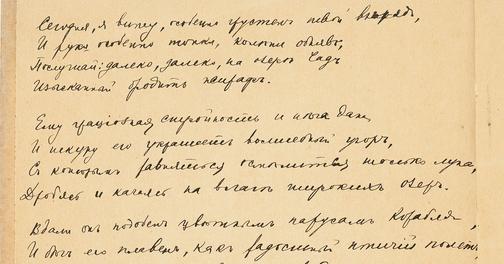 Сегодня, я вижу, особенно грустен твой взгляд,
И руки особенно тонки, колени обняв,
Послушай: далеко, далеко, на озере Чад
Изысканный бродит жираф.
Ему грациозная стройность и нега дана,
И шкуру его украшает волшебный узор,
С которым равняться осмелится только луна,
Дробясь и качаясь на влаге широких озер.
Вдали он подобен цветным парусам корабля,
И бег его плавен, как радостный птичий полет,